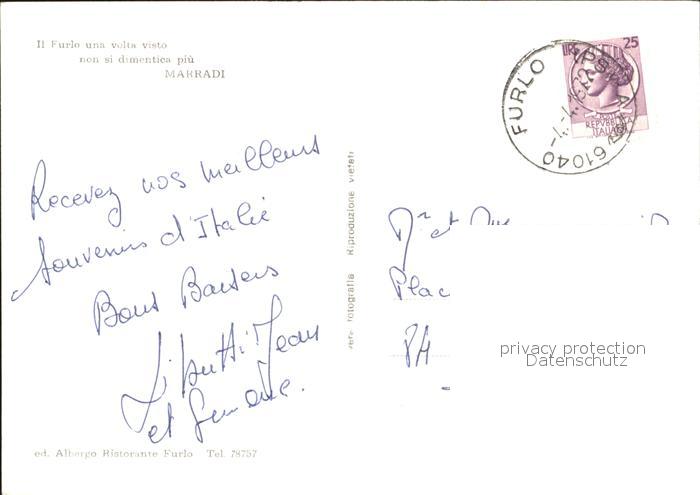 Il Furlo una volta visto
non si dimentica più
MARRADI
Recevez nos meilleurs
souvenirs d'Italie
Bons Baisers
Jean
et Simone.
ed. Albergo Ristorante Furlo Tel. 78757
vera fotografia Riproduzione vietata
FURLO
61040
LIRE 25
POSTE
REPUBBLICA
ITALIANA
Mr et Mme
Plac
PA
privacy protection
Datenschutz